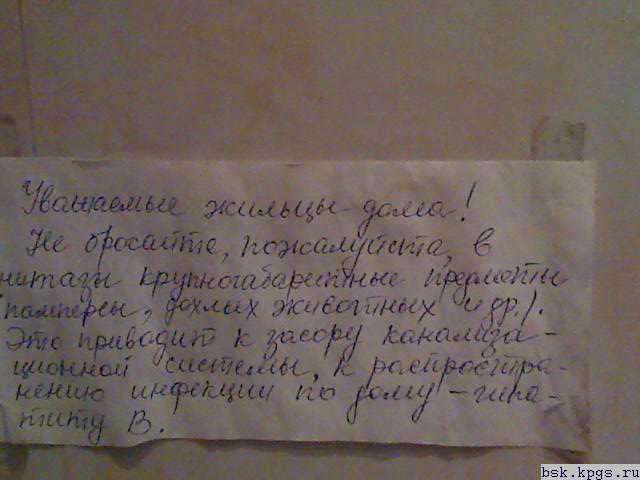 Уважаемые жильцы дома!
Не бросайте, пожалуйста, в
нитазы крупногабаритные предметы
(памперсы, дохлых животных и др.).
Это приводит к засору канализа-
ционной системы, к распростра-
нению инфекции по дому - гипа-
титу В.
bsk.kpgs.ru